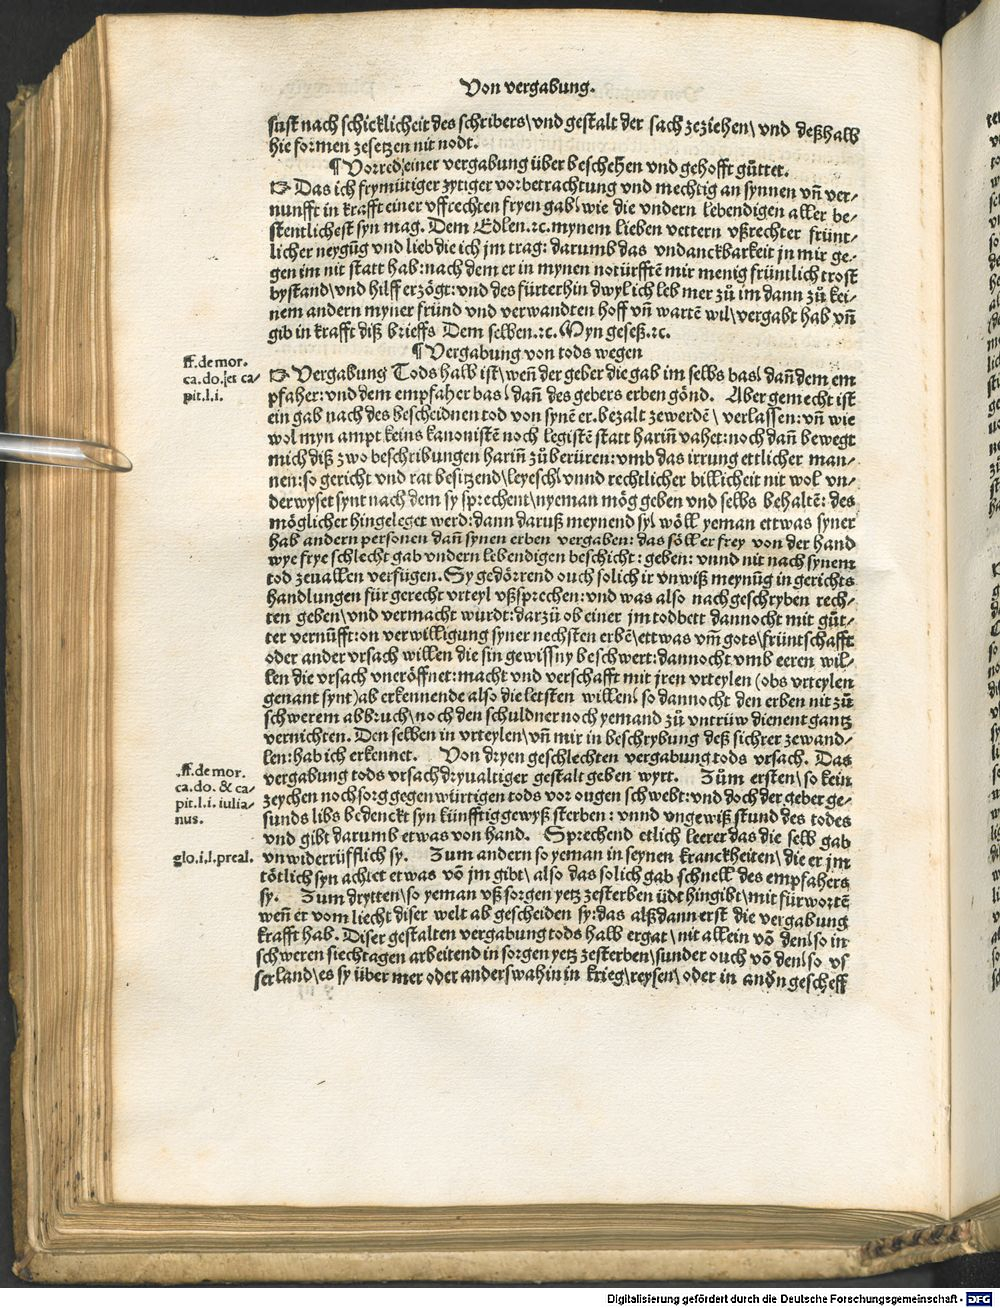 Von vergabung.
sust nach schicklicheit des schribers\ vnd gestalt der sach zeziehen\ vnd deßhalb
hie formen zesetzen nit nodt.
¶ Vorred einer vergabung über beschehen vnd gehofft gůttet.
☞ Das ich frymütiger zytiger vorbetrachtung vnd mechtig an synnen vñ ver⸗
nunfft in krafft einer vffrechten fryen gab\ wie die vndern lebendigen aller be⸗
stentlichest syn mag. Dem Edlen.ꝛc. mynem lieben vettern vßrechter frünt⸗
licher neygũg vnd lieb die ich jm trag: darumb das vndanckbarkeit jn mir ge⸗
gen im nit statt hab: nach dem er in mynen notürfftẽ mir menig früntlich trost
bystand\ vnd hilff erzögt: vnd des fürterhin dwyl ich leb mer zů im dann zů kei⸗
nem andern myner fründ vnd verwandten hoff vñ wartẽ wil\ vergabt hab vñ
gib in krafft diß brieffs Dem selben.ꝛc. Myn geseß.ꝛc.
¶ Vergabung von tods wegen
ff. de mor.
ca. do. et ca⸗
pit.l.i.
☞ Vergabung Tods halb ist\ weñ der geber die gab im selbs bas\ dañ dem em
pfaher: vnd dem empfaher bas\ dañ des gebers erben gönd. Aber gemecht ist
ein gab nach des bescheidnen tod von synẽ er. bezalt zewerdẽ\ verlassen: vñ wie
wol myn ampt keins kanonistẽ noch legistẽ statt hariñ vahet: noch dañ bewegt
mich diß zwo beschribungen hariñ zůberüren: vmb das irrung ettlicher man⸗
nen: so gericht vnd rat besitzend\ leyesch\ vnnd rechtlicher billicheit nit wol vn⸗
derwyset synt nach dem sy sprechent\ nyeman mög geben vnd selbs behaltẽ: des
möglicher hingeleget werd: dann daruß meynend sy\ wöll yeman ettwas syner
hab andern personen dañ synen erben vergaben: das söll er frey von der hand
wye frye schlecht gab vndern lebendigen beschicht: geben: vnnd nit nach synem
tod zeuallen verfügen. Sy gedörrend ouch solich ir vnwiß meynũg in gerichts
handlungen für gerecht vrteyl vßsprechen: vnd was also nachgeschryben rech⸗
ten geben\ vnd vermacht wurdt: darzů ob einer jm todbett dannocht mit gůt⸗
ter vernüfft: on verwilligung syner nechsten erbẽ\ ettwas vm̃ gots\ früntschafft
oder ander vrsach willen die sin gewissny beschwert: dannocht vmb eeren wil⸗
len die vrsach vneröffnet: macht vnd verschafft mit jren vrteylen (obs vrteylen
genant synt) ab erkennende also die letsten willen\ so dannocht den erben nit zů
schwerem abbruch\ noch den schuldner noch yemand zů vntrüw dienent gantz
vernichten. Den selben in vrteylen\ vñ mir in beschrybung deß sichrer zewand⸗
len: hab ich erkennet. Von dryen geschlechten vergabung tods vrsach. Das
ff. de mor.
ca. do. & ca⸗
pit.l.i. iulia⸗
nus.
vergabung tods vrsach dryualtiger gestalt geben wyrt. Zům ersten\ so kein
zeychen noch sorg gegenwürtigen tods vor ougen schwebt: vnd doch der geber ge⸗
sunds libs bedenckt syn künfftig gewyß sterben: vnnd vngewiß stund des todes
vnd gibt darumb etwas von hand. Sprechend etlich leerer das die selb gab
glo.i.l.preal.
vnwiderrüfflich sy. Zum andern so yeman in seynen kranckheiten\ die er jm
tötlich syn achtet etwas võ jm gibt\ also das solich gab schnell des empfahers
sy. Zum drytten\ so yeman vß sorgen yetz zesterben üdt hingibt\ mit fürwortẽ
weñ er vom liecht diser welt ab gescheiden sy: das alßdann erst die vergabung
krafft hab. Diser gestalten vergabung tods halb ergat\ nit allein võ den\ so in
schweren siechtagen arbeitend in sorgen yetz zesterben\ sunder ouch võ den\ so vs
ser land\ es sy über mer oder anderswahin in krieg\ reysen\ oder in andn̄ gescheff
Digitalisierung gefördert durch die Deutsche Forschungsgemeinschaft - DFG